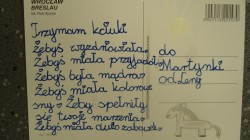 WROCŁAW
BRESLAU
Trzymam kciuki
Żebyś wyzdrowiała
Żebyś miała przygody
Żebyś była mądra
Żebyś miała kolorowe
sny i Żeby spełniły
się twoje marzenia
Żebyś miała dużo zabawek
do
Martynki
od Leny